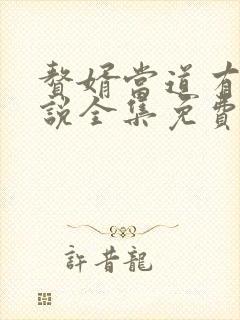 贅婿當道有
說全集免費
許昔龍